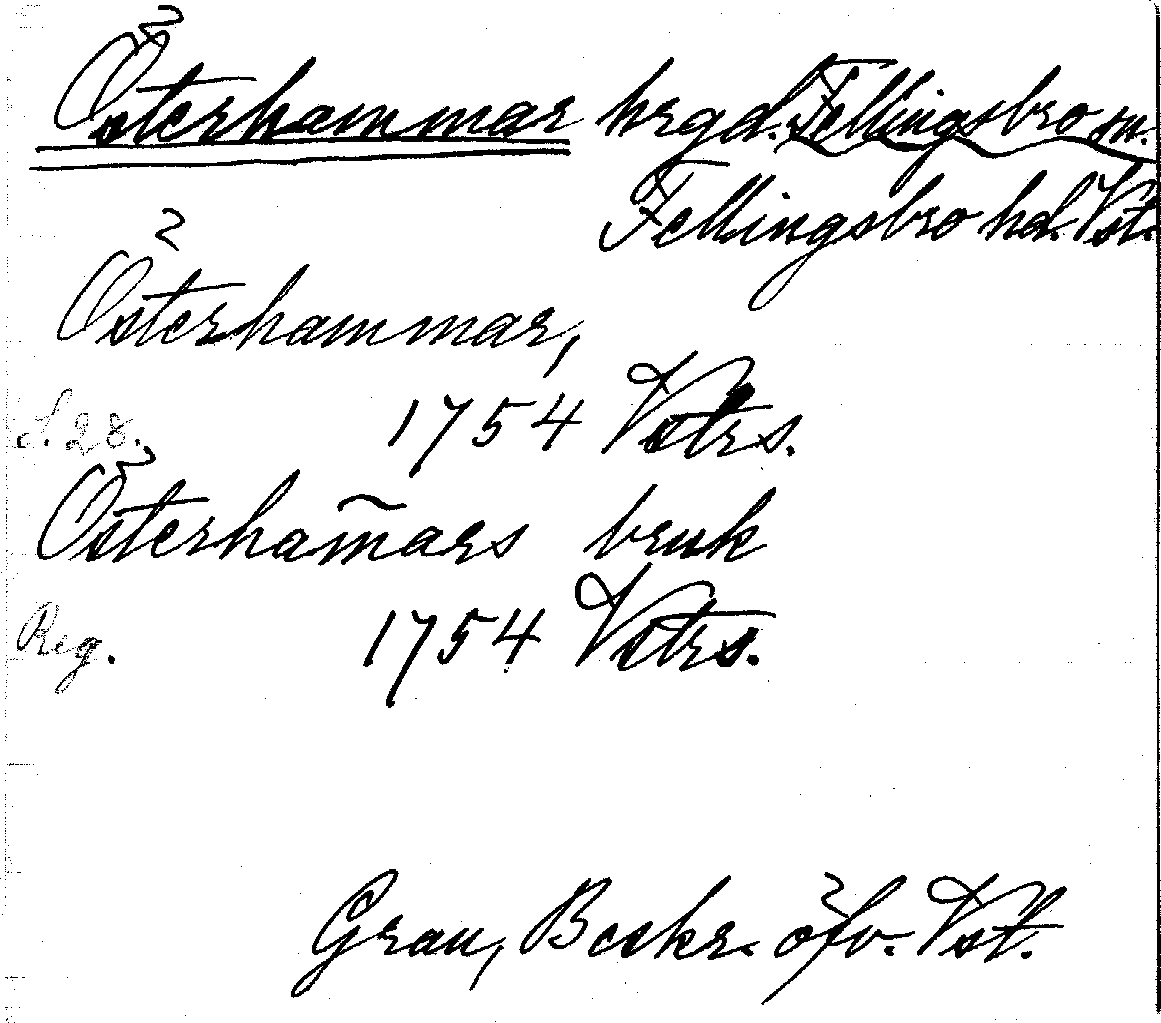 Österhammar hrgd. Fellingsbro sn.
Fellingsbro hd. Vst.
Österhammar,
S. 28. 1754 Vstrs.
Österham̃ars bruk
Reg. 1754 Vstrs.
Grau, Beskr. öfv. Vst.